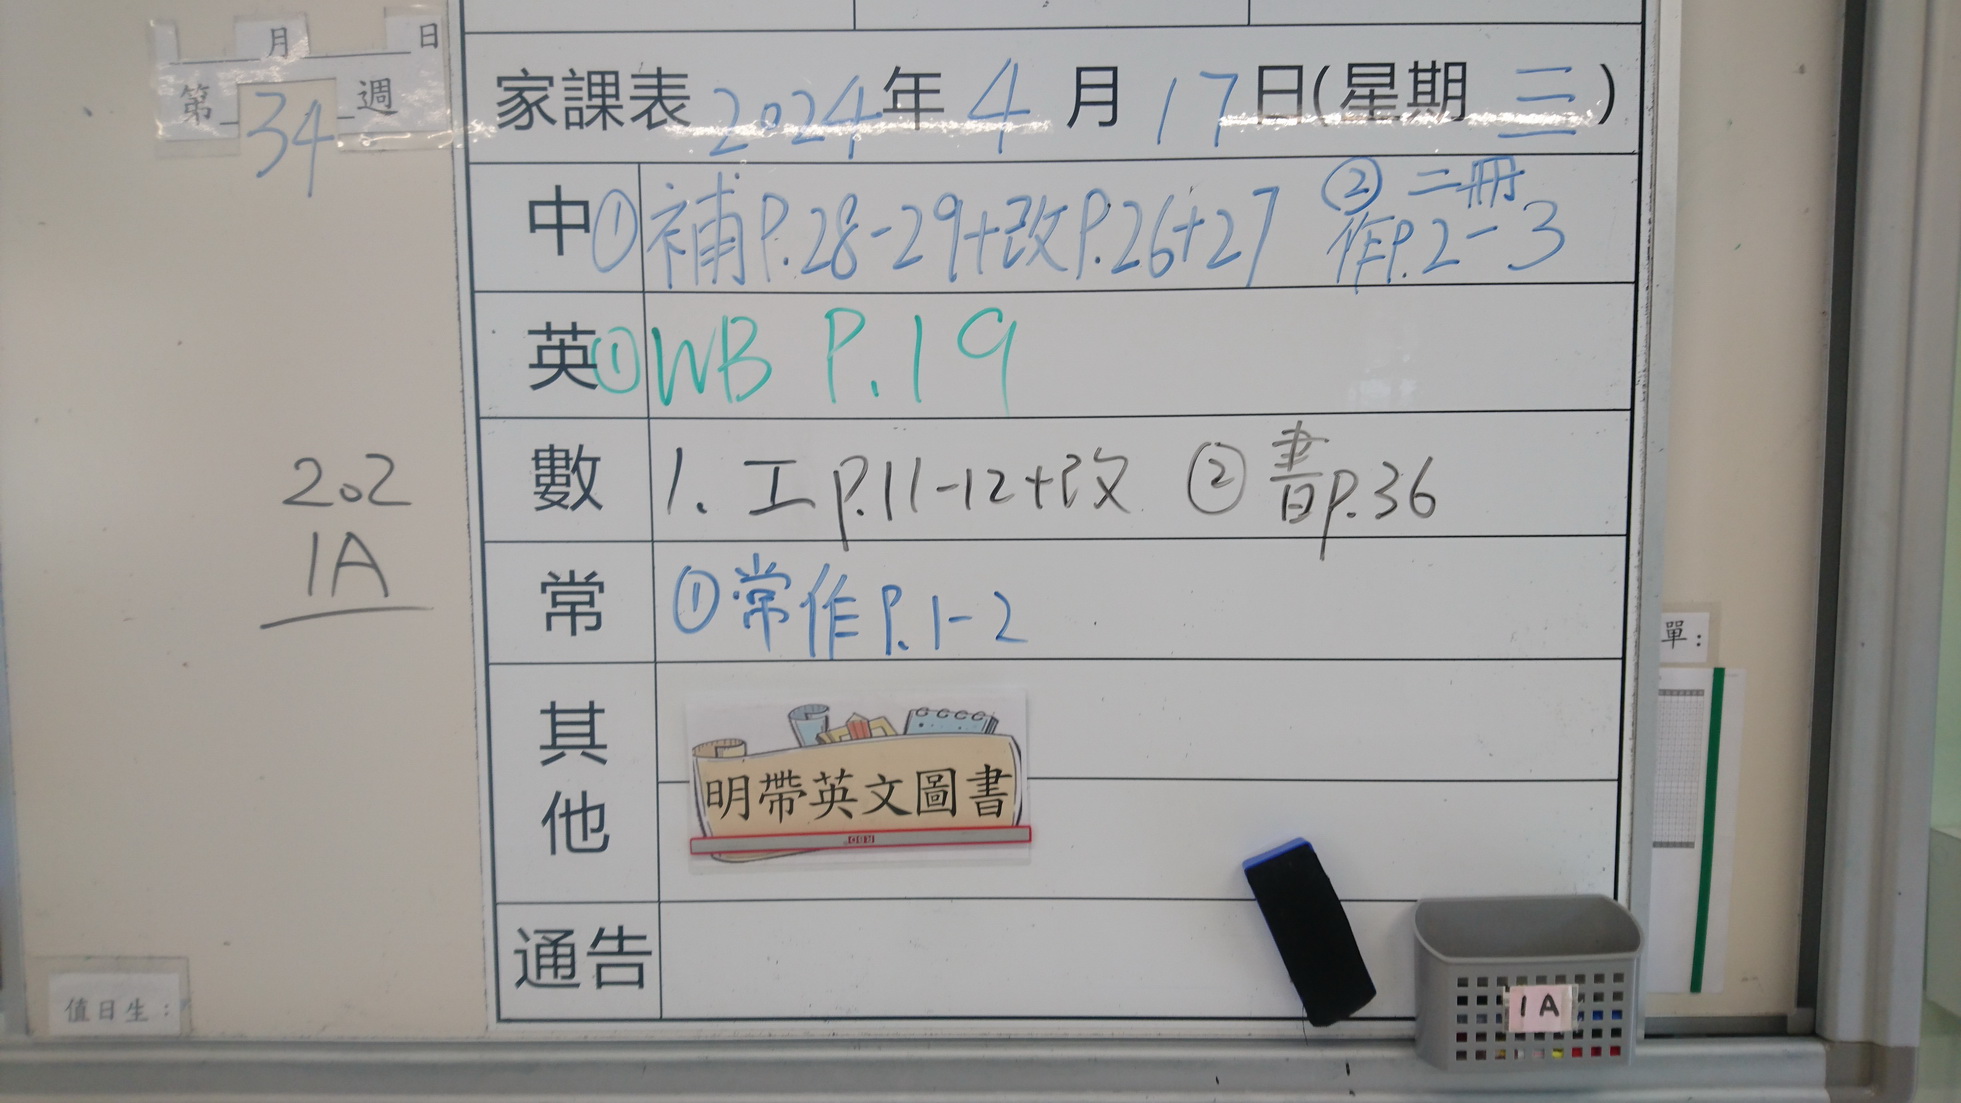 月 日
第 34 週
家課表 2024 年 4 月 17 日(星期 三)
中 ① 補P.28-29+改P.26+27 ② 二冊
作P.2-3
英 ① WB P.19
數 1. 工 P.11-12+改 ② 書P.36
202
1A
常 ① 常作 P.1-2
單:
其他
明帶英文圖書
通告
1A
值日生: